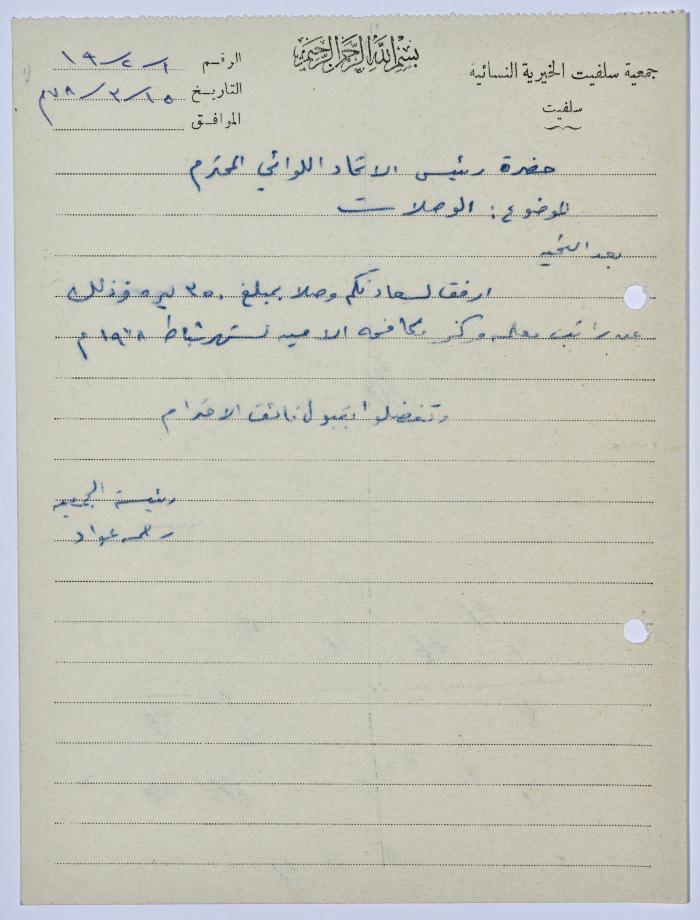 بسم الله الرحمن الرحيم
جمعية سلفيت الخيرية النسائية
سلفيت
الرقم ١ / ٢ / ١٩
التاريخ ١٥ / ٣ / ٧٨م
الموافق
حضرة رئيس الاتحاد اللوائي المحترم
الموضوع : الوصلات
بعد التحيه
ارفق لسعادتكم وصلا بمبلغ ٣٥٠ ليره وذلك
عن راتب معلمه مركز مكافحه الاميه لشهر شباط ١٩٧٨م
وتفضلوا بقبول فائق الاحترام
رئيسة الجمعيه
رحمه عواد